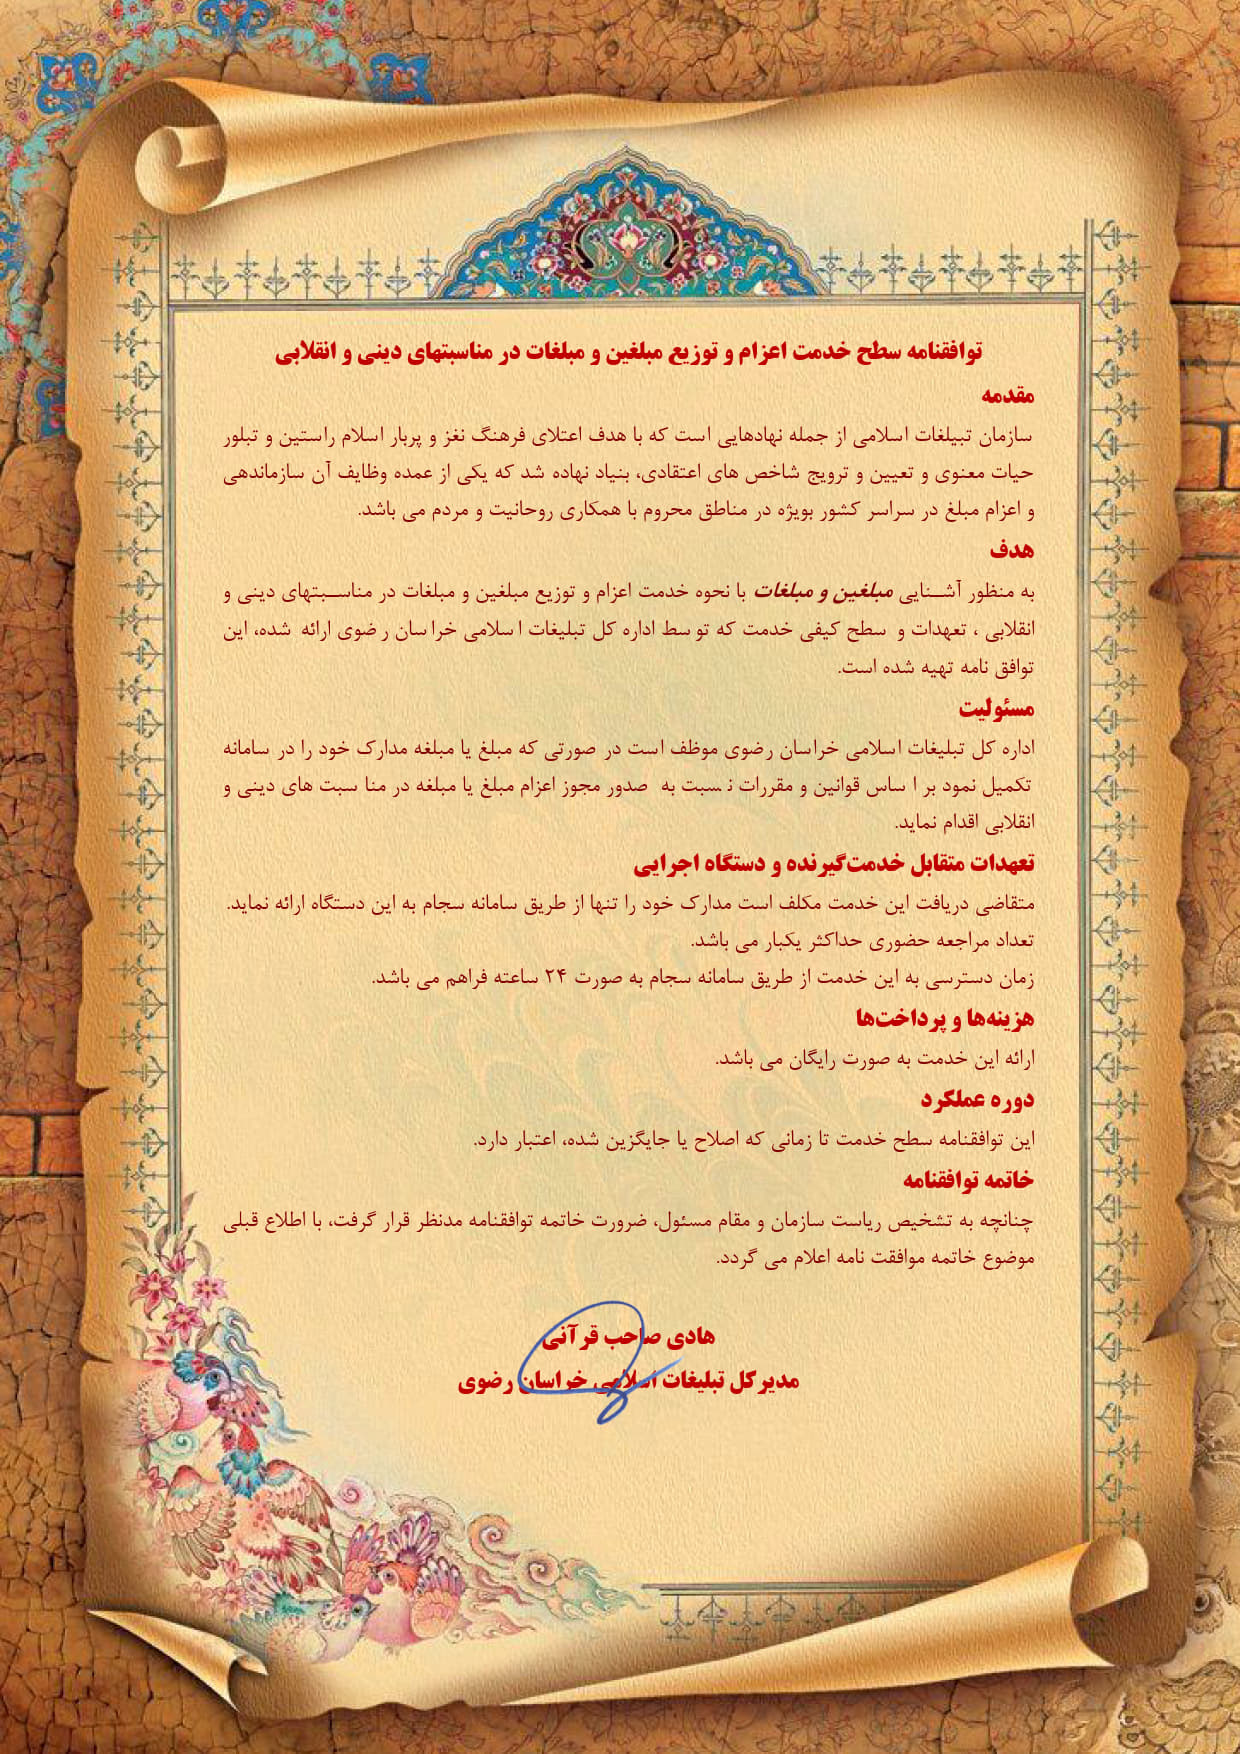 توافقنامه سطح خدمت اعزام و توزیع مبلغین و مبلغات در مناسبتهای دینی و انقلابی
مقدمه
سازمان تبیلغات اسلامی از جمله نهادهایی است که با هدف اعتلای فرهنگ نغز و پربار اسلام راستین و تبلور
حیات معنوی و تعیین و ترویج شاخص های اعتقادی، بنیاد نهاده شد که یکی از عمده وظایف آن سازماندهی
و اعزام مبلغ در سراسر کشور بویژه در مناطق محروم با همکاری روحانیت و مردم می باشد.
هدف
به منظور آشنایی مبلغین و مبلغات با نحوه خدمت اعزام و توزیع مبلغین و مبلغات در مناسبتهای دینی و
انقلابی ، تعهدات و سطح کیفی خدمت که توسط اداره کل تبلیغات اسلامی خراسان رضوی ارائه شده، این
توافق نامه تهیه شده است.
مسئولیت
اداره کل تبلیغات اسلامی خراسان رضوی موظف است در صورتی که مبلغ یا مبلغه مدارک خود را در سامانه
تکمیل نمود بر اساس قوانین و مقررات نسبت به صدور مجوز اعزام مبلغ یا مبلغه در مناسبت های دینی و
انقلابی اقدام نماید.
تعهدات متقابل خدمت‌گیرنده و دستگاه اجرایی
متقاضی دریافت این خدمت مکلف است مدارک خود را تنها از طریق سامانه سجام به این دستگاه ارائه نماید.
تعداد مراجعه حضوری حداکثر یکبار می باشد.
زمان دسترسی به این خدمت از طریق سامانه سجام به صورت ۲۴ ساعته فراهم می باشد.
هزینه‌ها و پرداخت‌ها
ارائه این خدمت به صورت رایگان می باشد.
دوره عملکرد
این توافقنامه سطح خدمت تا زمانی که اصلاح یا جایگزین شده، اعتبار دارد.
خاتمه توافقنامه
چنانچه به تشخیص ریاست سازمان و مقام مسئول، ضرورت خاتمه توافقنامه مدنظر قرار گرفت، با اطلاع قبلی
موضوع خاتمه موافقت نامه اعلام می گردد.
هادی صاحب قرآنی
مدیرکل تبلیغات اسلامی خراسان رضوی